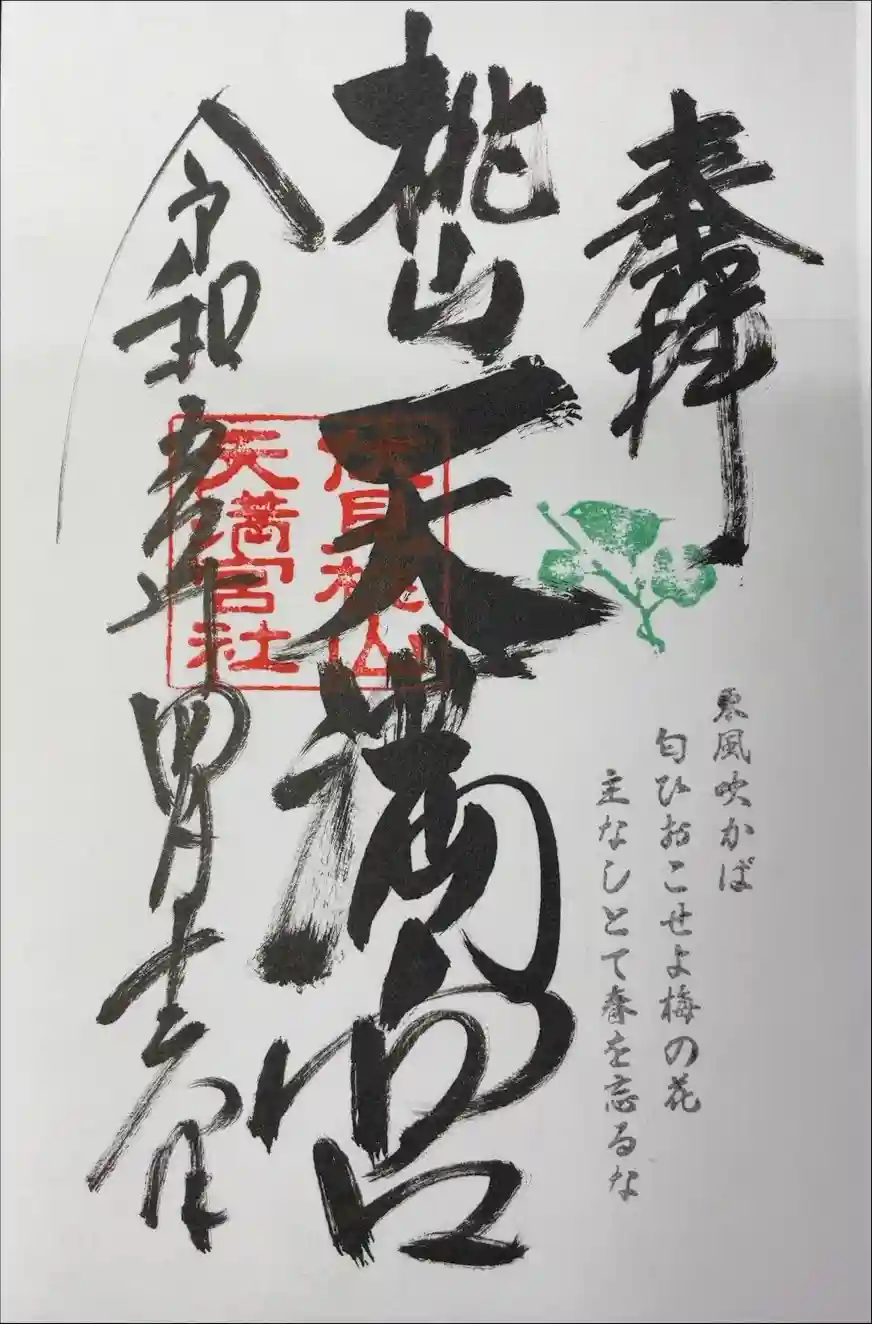 奉拝
東風吹かば
匂ひおこせよ梅の花
主なしとて春を忘るな
桃山天満宮
春日桃山
天満宮社
令和五年四月十二日